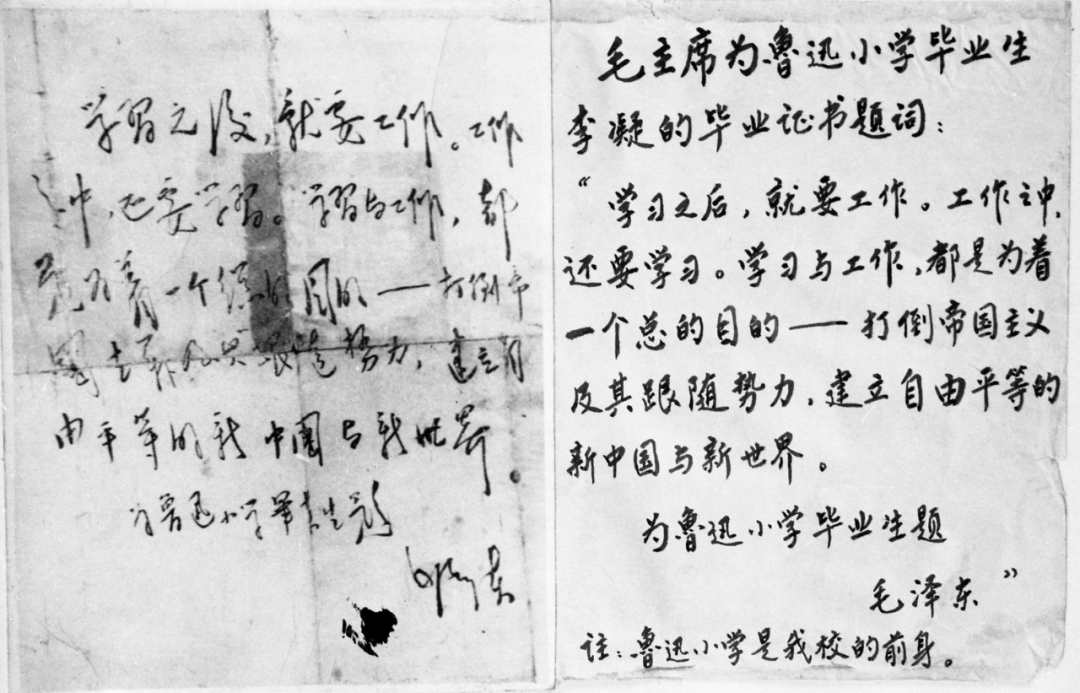 学習之后，就要工作。工作
之中，还要学習。学習与工作，都
是为着一个总的目的——打倒帝
國主义及其跟随势力，建立自
由平等的新中國与新世界。
为鲁迅小学毕业生题
毛泽东
毛主席为鲁迅小学毕业生
李凝的毕业证书题词：
“学习之后，就要工作。工作之中，
还要学习。学习与工作，都是为着
一个总的目的——打倒帝国主义
及其跟随势力，建立自由平等的
新中国与新世界。
为鲁迅小学毕业生题
毛泽东”
註：鲁迅小学是我校的前身。